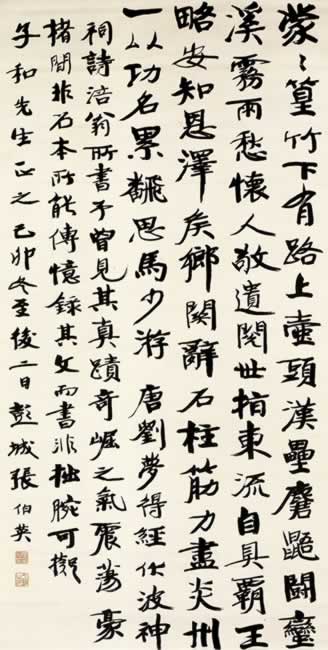 蒙〻篁竹下有路上壺頭漢壘麏鼯鬪蠻
溪霧雨愁懷人敬遺閱世指東流自具霸王
略安知恩澤矦鄉關辭石柱筋力盡炎州
一以功名累飜思馬少游 唐劉夢得經伏波神
祠詩涪翁所書予曾見其真蹟奇崛之氣震蕩豪
楮間非石本所能傳憶錄其文而書非拙腕可擬
子和先生正之己卯冬至後二日彭城張伯英